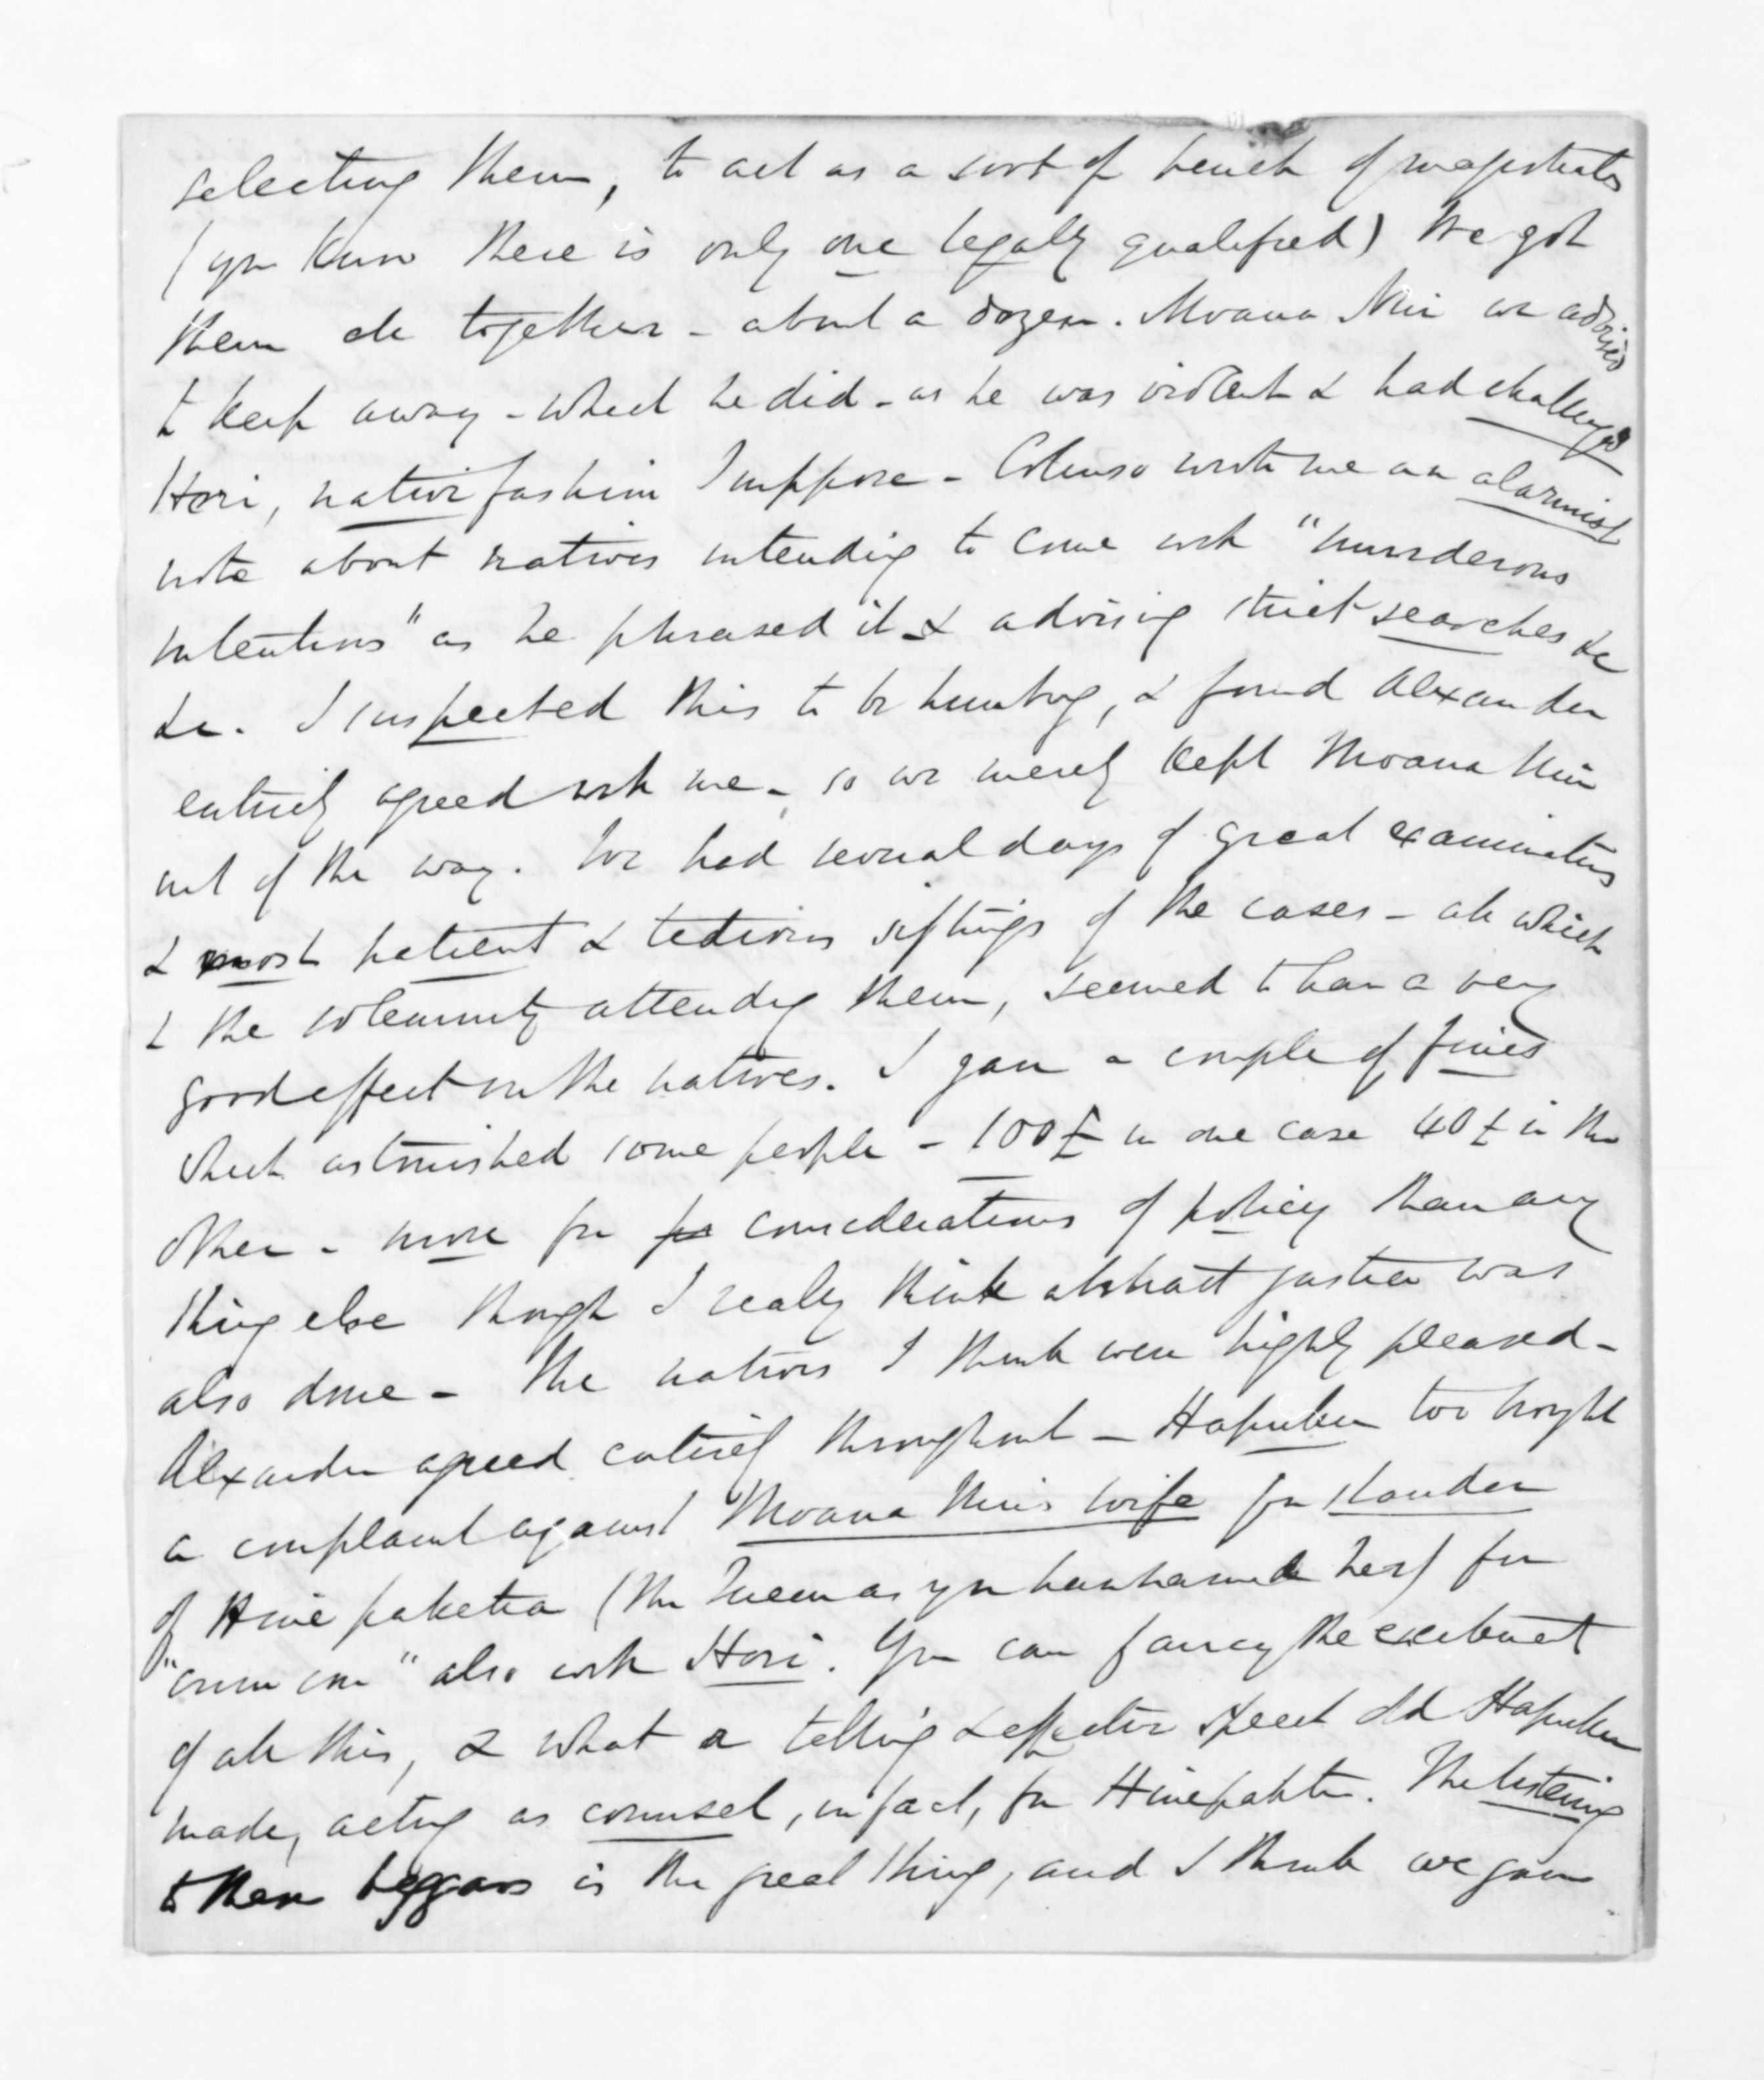 selecting them, to act as a sort of bench of magistrates
(you know there is only one legally qualified) We got
them all together - about a dozen. Moana Nui we advised
to keep away - which he did - as he was violent & had challenged
Hori, native fashion I suppose - Colenso wrote me an alarmist
note about natives intending to come with "murderous
intentions" as he phrased it & advising strict searches &c
&c. I suspected this to be humbug, & found Alexander
entirely agreed with me - so we merely kept Moana Nui
out of the way. We had several days of great examinations
& most patient & tedious siftings of the cases - all which
& the solemnity attending them, seemed to have a very
good effect on the natives. I gave a couple of fines
which astonished some people - 100£ in one case 40£ in the
other - more for considerations of policy than any
thing else though I really think abstract justice was
also done - The natives I think were highly pleased -
Alexander agreed entirely throughout - Hapuku too brought
a complaint against Moana Nui's wife for slander
of Hine paketia (the Queen as you have named her) for
"crim con" also with Hori. You can fancy the excitement
of all this, & what a telling & effective speech old Hapuku
made, acting as counsel, in fact, for Hinepaketia. The listening
to these beggars is the great thing, and I think we gave